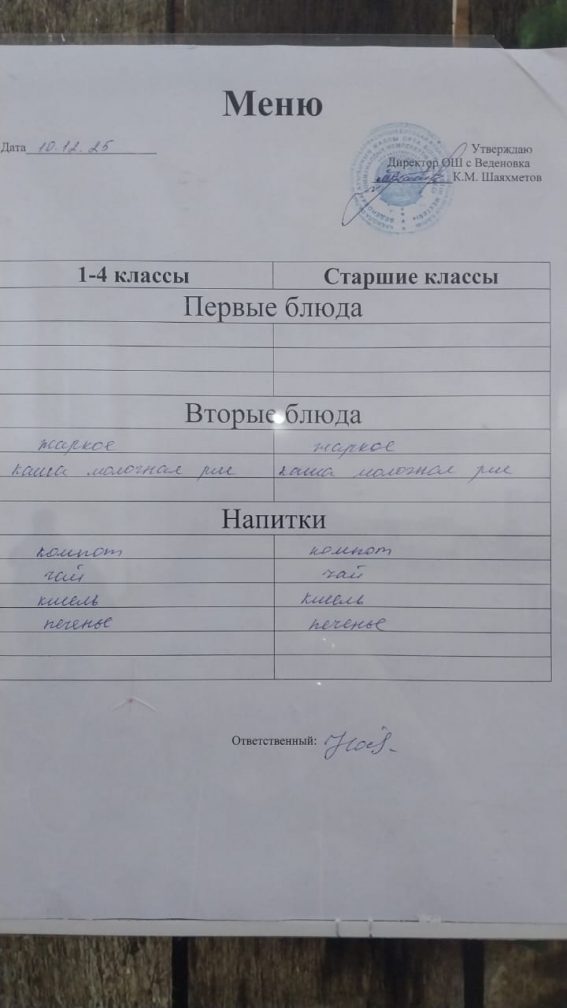 Меню
Дата 10.12.25
Утверждаю
Директор ОШ с Веденовка
К.М. Шаяхметов
1-4 классы Старшие классы
Первые блюда
Вторые блюда
жаркое жаркое
каша молочная рис каша молочная рис
Напитки
компот компот
чай чай
кисель кисель
печенье печенье
Ответственный: